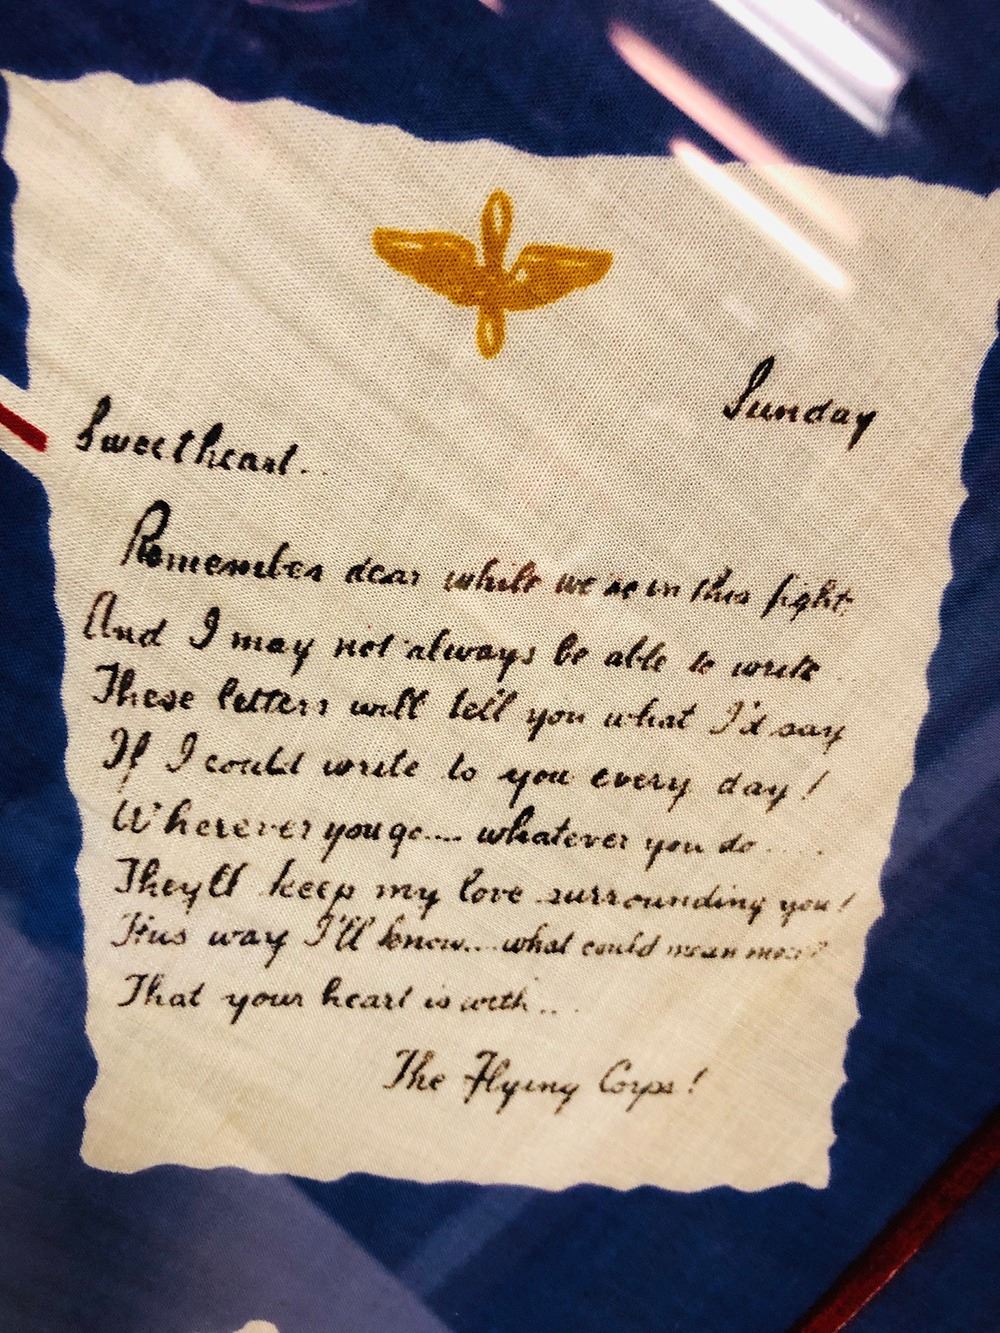 Sunday
Sweetheart..
Remember dear while we're in this fight.
And I may not always be able to write
These letters will tell you what I'd say
If I could write to you every day!
Wherever you go.... whatever you do.....
They'll keep my love surrounding you!
This way I'll know... what could mean more?
That your heart is with...
The Flying Corps!